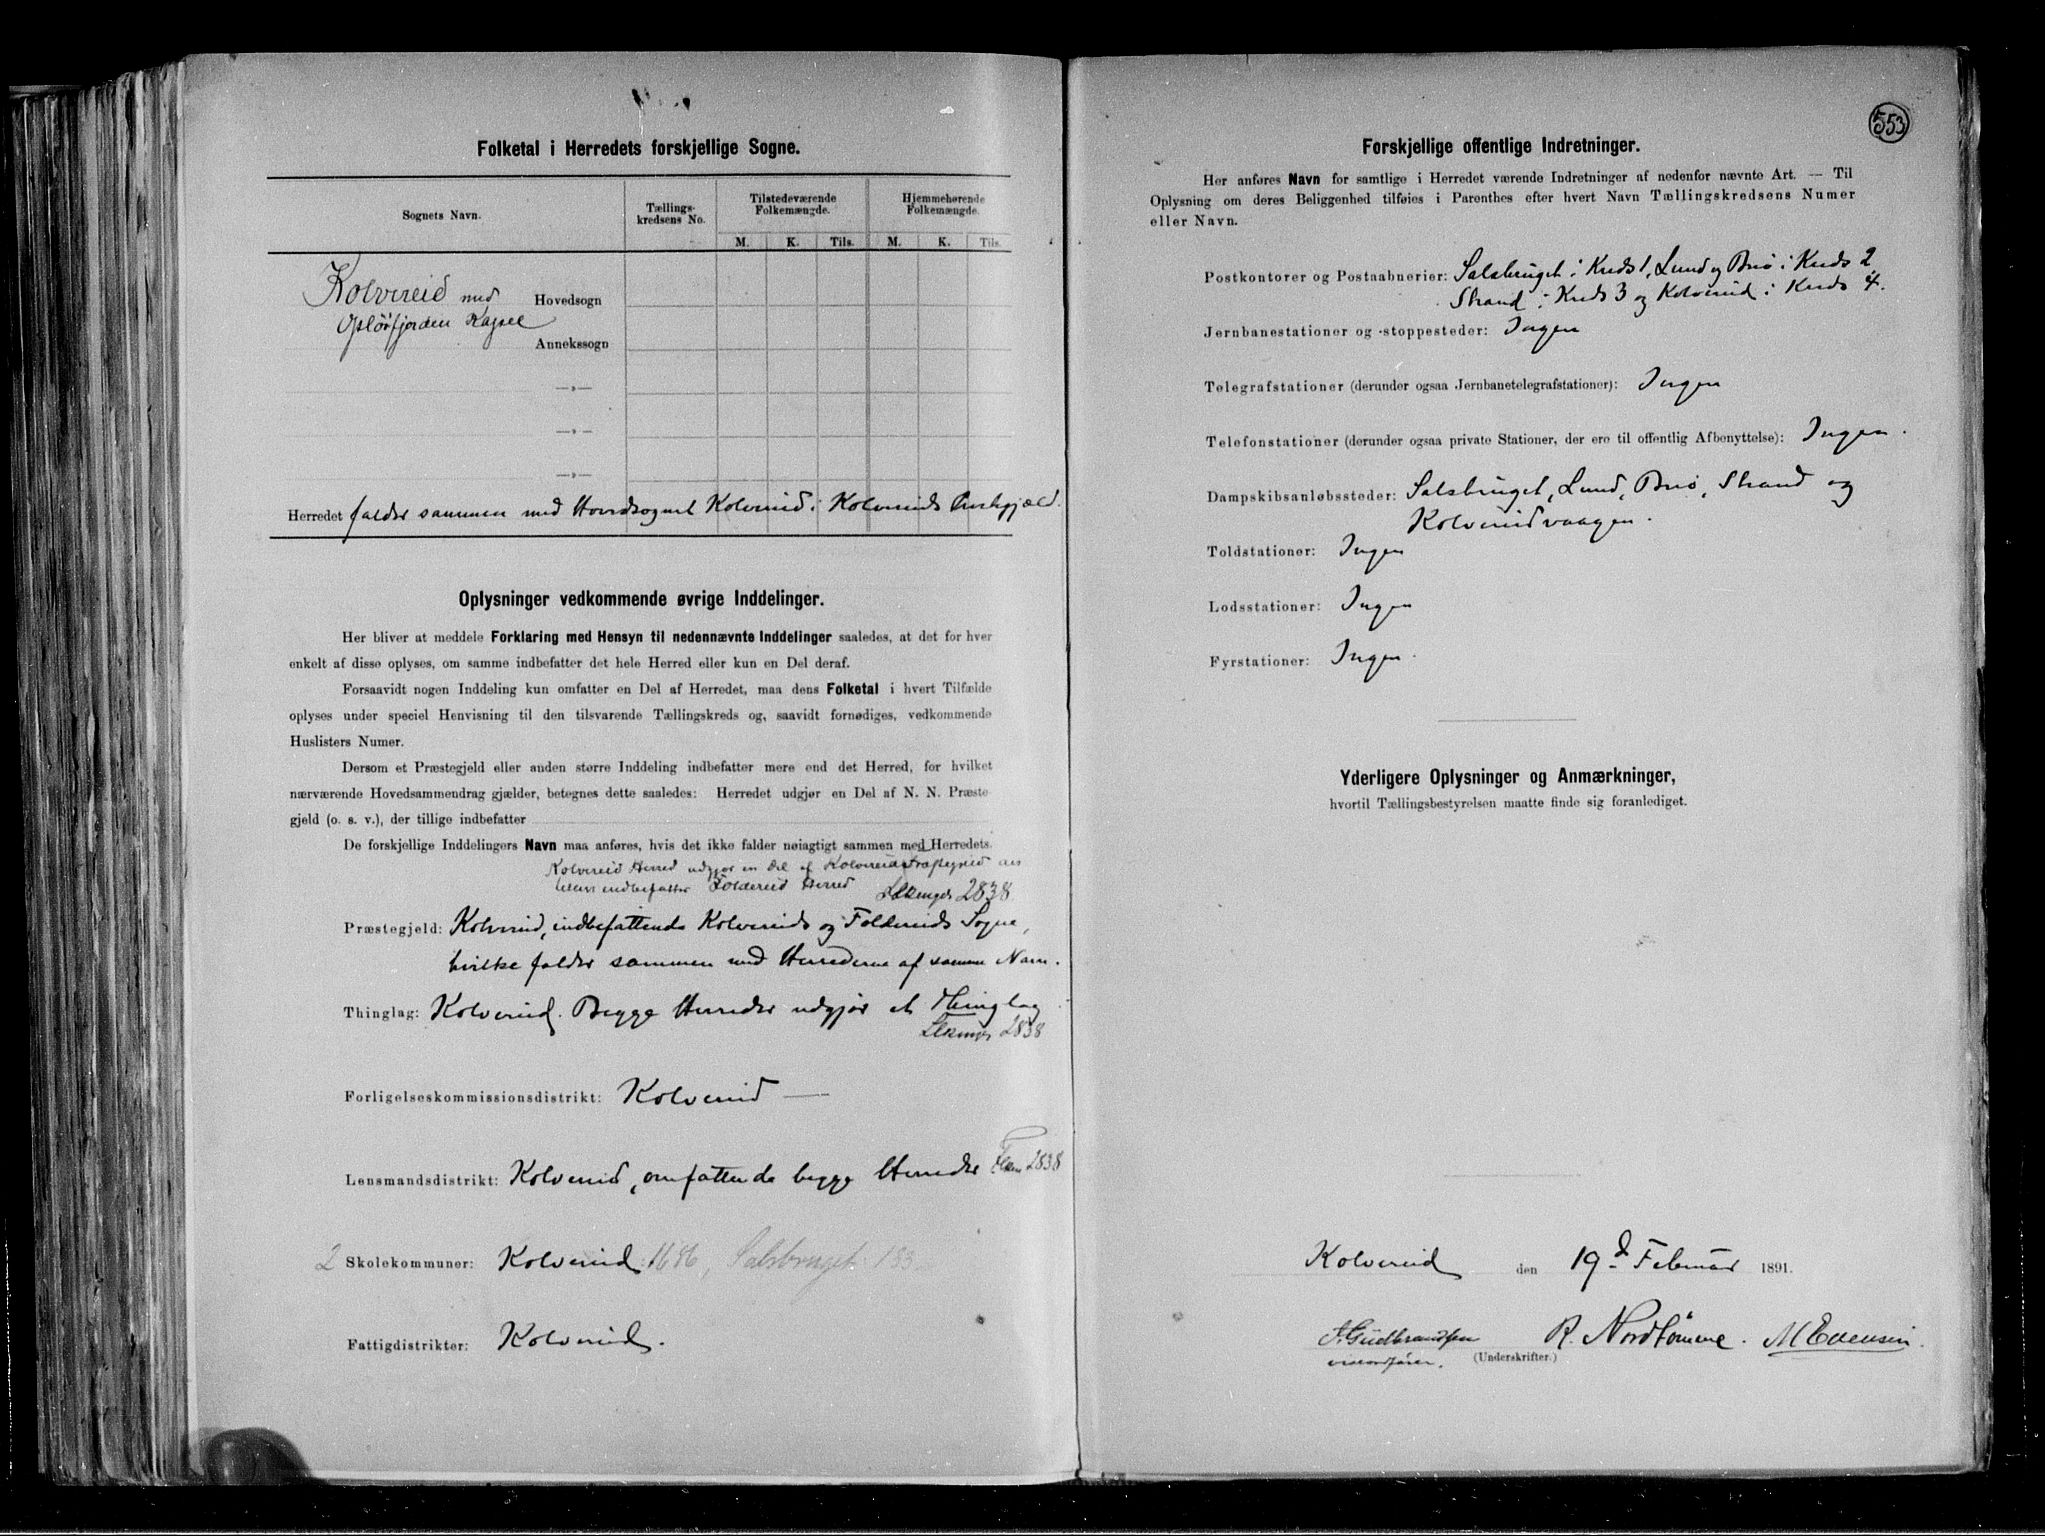 Folketal i Herredets forskjellige Sogne.
Sognets Navn.
Tællings-
kredsens No.
Tilstedeværende
Folkemængde.
Hjemmehørende
Folkemængde.
M. K. Tils. M. K. Tils.
Kolvereid med Hovedsogn
Opløfjorden Kapel
Annekssogn
—„—
—„—
—„—
Herredet falder sammen med Hovedsognet Kolvereid i Kolvereids Præstegjæld.
Oplysninger vedkommende øvrige Inddelinger.
Her bliver at meddele Forklaring med Hensyn til nedennævnte Inddelinger saaledes, at det for hver
enkelt af disse oplyses, om samme indbefatter det hele Herred eller kun en Del deraf.
Forsaavidt nogen Inddeling kun omfatter en Del af Herredet, maa dens Folketal i hvert Tilfælde
oplyses under speciel Henvisning til den tilsvarende Tællingskreds og, saavidt fornødiges, vedkommende
Huslisters Numer.
Dersom et Præstegjeld eller anden større Inddeling indbefatter mere end det Herred, for hvilket
nærværende Hovedsammendrag gjælder, betegnes dette saaledes: Herredet udgjør en Del af N. N. Præste-
gjeld (o. s. v.), der tillige indbefatter
De forskjellige Inddelingers Navn maa anføres, hvis det ikke falder nøiagtigt sammen med Herredets.
Kolvereid Herred udgjør en Del af Kolvereid Præstegjeld der
tillige indbefatter Foldereid Herred
2838
Præstegjeld: Kolvereid, indbefattende Kolvereids og Foldereids Sogne,
hvilke falder sammen med Herrederne af samme Navn.
Thinglag: Kolvereid. Begge Herreder udgjør et Thinglag
2838
Forligelseskommissionsdistrikt: Kolvereid —
Lensmandsdistrikt: Kolvereid, omfattende begge Herreder 2838
2 Skolekommuner: Kolvereid 1686, Salsbruget 183
Fattigdistrikter: Kolvereid.
553
Forskjellige offentlige Indretninger.
Her anføres Navn for samtlige i Herredet værende Indretninger af nedenfor nævnte Art. — Til
Oplysning om deres Beliggenhed tilføies i Parenthes efter hvert Navn Tællingskredsens Numer
eller Navn.
Postkontorer og Postaabnerier: Salsbruget i Kreds 1, Lund og Brø i Kreds 2
Strand i Kreds 3 og Kolvereid i Kreds 4.
Jernbanestationer og -stoppesteder: Ingen
Telegrafstationer (derunder ogsaa Jernbanetelegrafstationer): Ingen
Telefonstationer (derunder ogsaa private Stationer, der ere til offentlig Afbenyttelse): Ingen.
Dampskibsanløbssteder: Salsbruget, Lund, Brø, Strand og
Kolvereidvaagen.
Toldstationer: Ingen
Lodsstationer: Ingen
Fyrstationer: Ingen.
Yderligere Oplysninger og Anmærkninger,
hvortil Tællingsbestyrelsen maatte finde sig foranlediget.
Kolvereid den 19d Februar 1891.
A. Gudbrandsen R. Nordtømme. M Evensen.
viseordfører. (Underskrifter.)